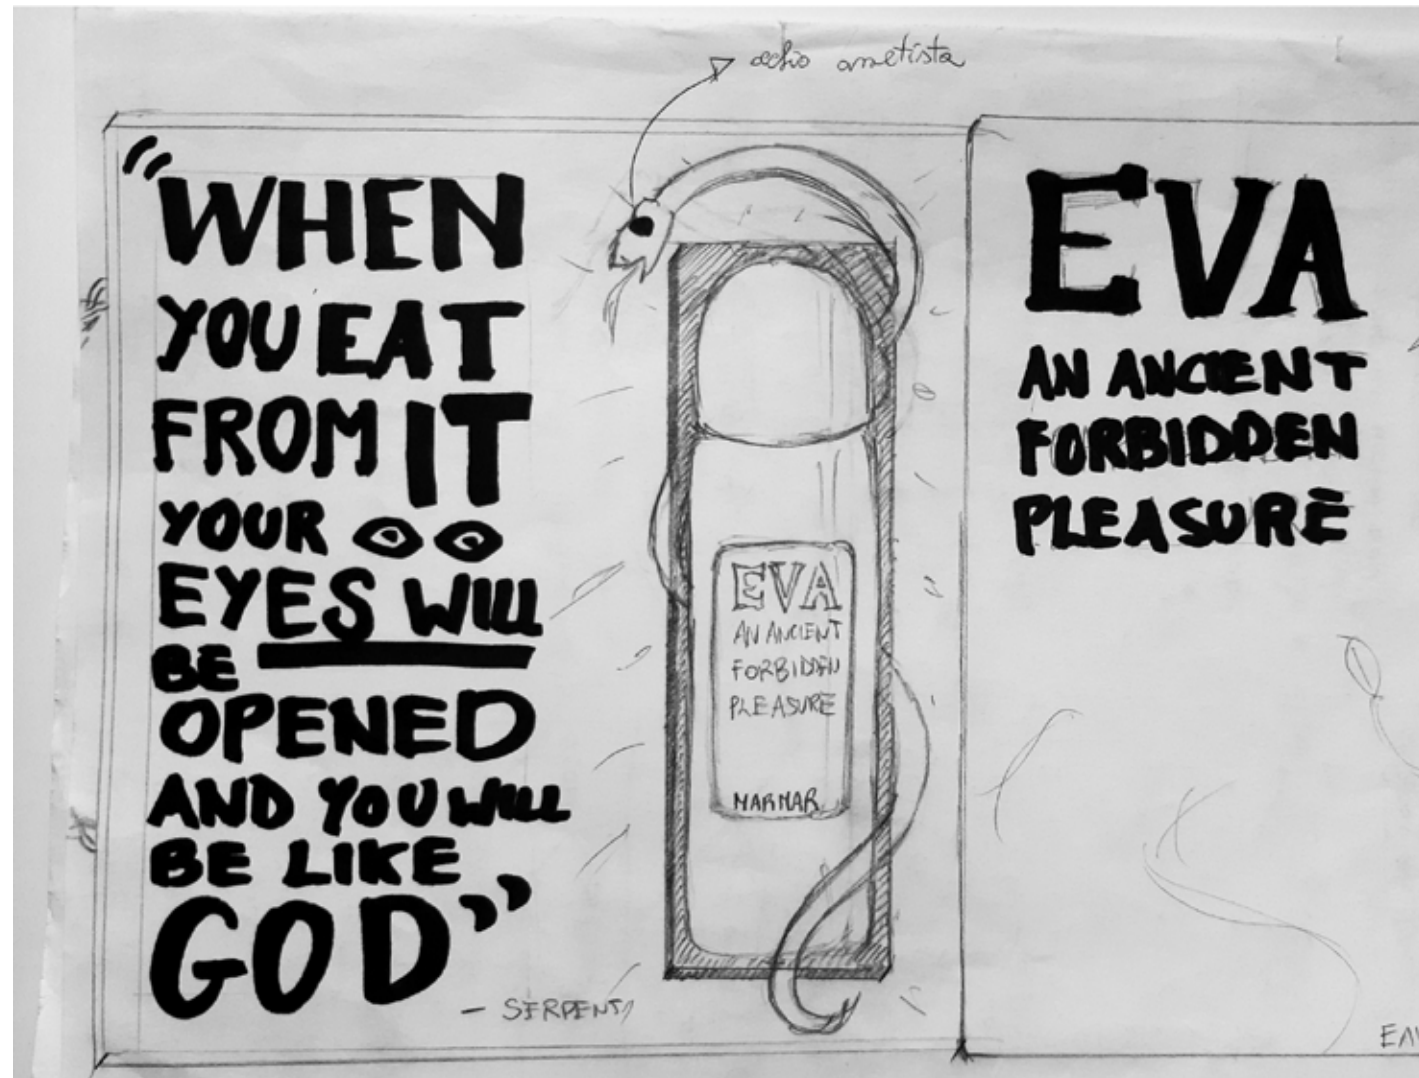 occhio ametista
"WHEN
YOU EAT
FROM IT
YOUR
EYES WILL
BE
OPENED
AND YOU WILL
BE LIKE
GOD"
- SERPENT
EVA
AN ANCIENT
FORBIDDEN
PLEASURE
MARMAR
EVA
AN ANCIENT
FORBIDDEN
PLEASURE